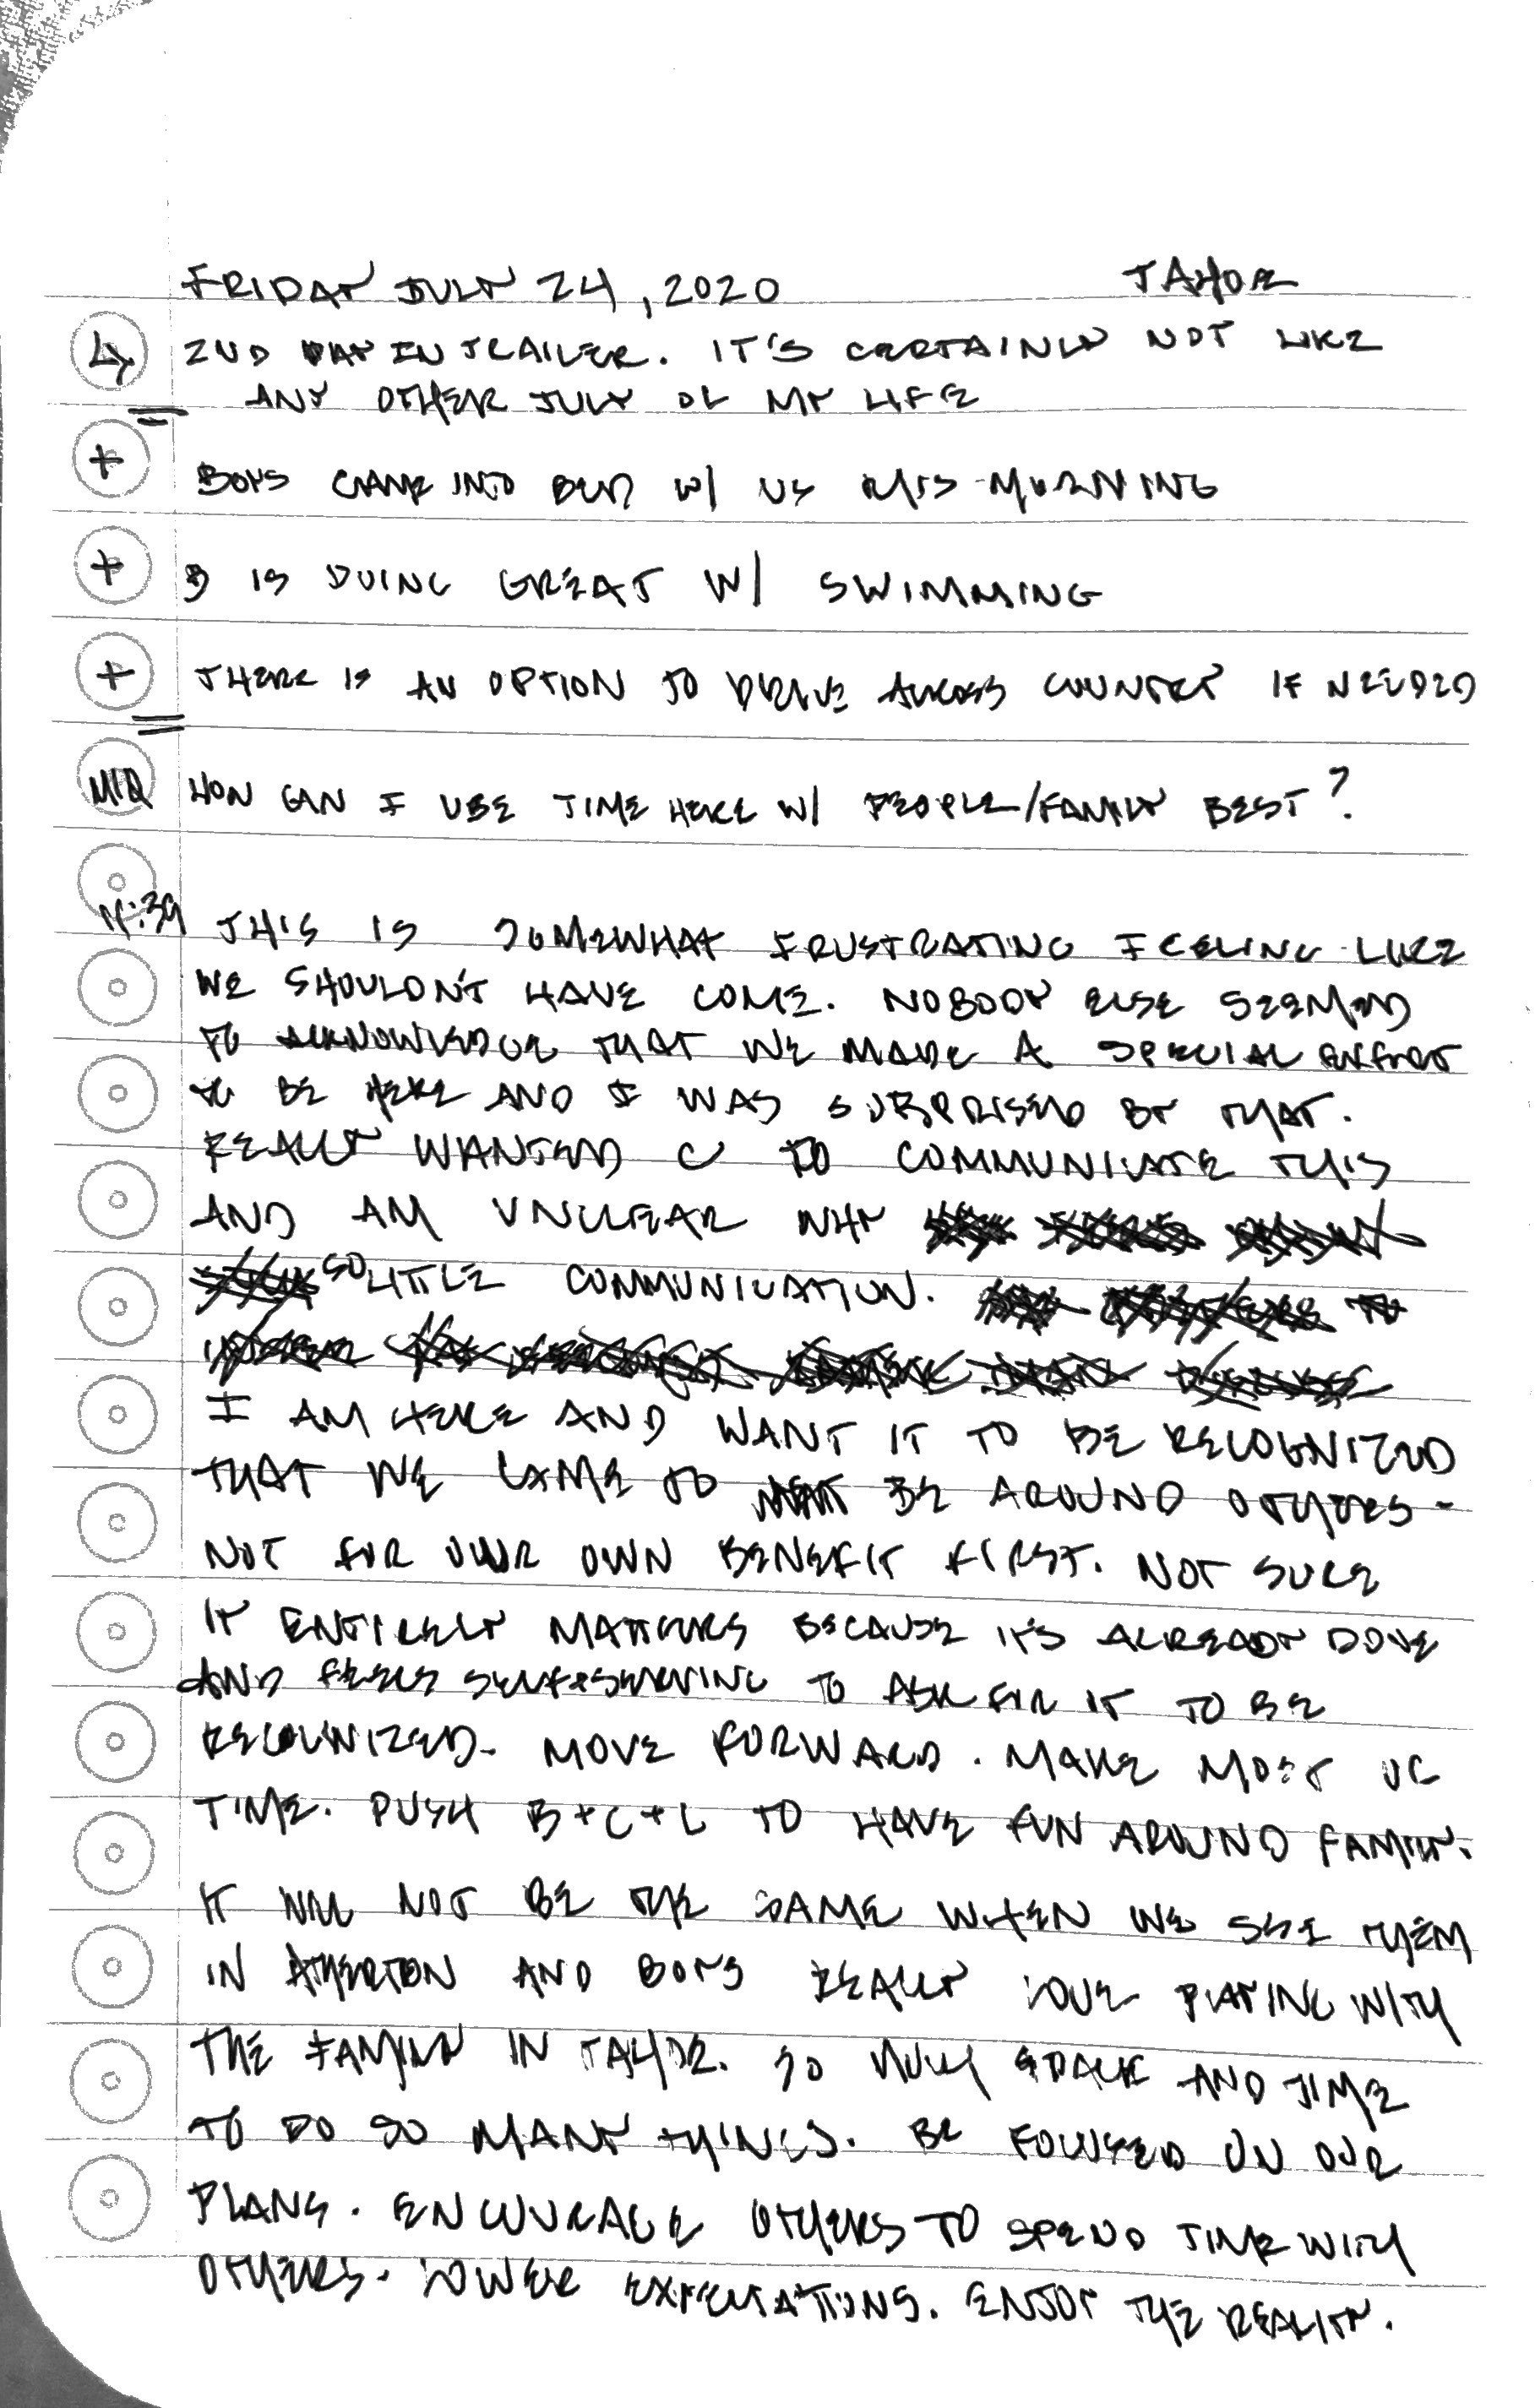 FRIDAY JULY 24, 2020 TAHOE
2ND DAY IN TRAILER. IT'S CERTAINLY NOT LIKE
ANY OTHER JULY OF MY LIFE
+ BOYS CAME INTO BED W/ US THIS MORNING
+ B IS DOING GREAT W/ SWIMMING
+ THERE IS AN OPTION TO DRIVE ACROSS COUNTRY IF NEEDED
MIQ HOW CAN I USE TIME HERE W/ PEOPLE/FAMILY BEST?
THIS IS SOMEWHAT FRUSTRATING FEELING LIKE
WE SHOULDN'T HAVE COME. NOBODY ELSE SEEMED
TO ACKNOWLEDGE THAT WE MADE A SPECIAL EFFORT
TO BE HERE AND I WAS SURPRISED BY THAT.
REALLY WANTED C TO COMMUNICATE THIS
AND AM UNCLEAR WHY
SO LITTLE COMMUNICATION.
I AM HERE AND WANT IT TO BE RECOGNIZED
THAT WE CAME TO BE AROUND OTHERS -
NOT FOR OUR OWN BENEFIT FIRST. NOT SURE
IT ENTIRELY MATTERS BECAUSE IT'S ALREADY DONE
AND FEELS SELF-SERVING TO ASK FOR IT TO BE
RECOGNIZED. MOVE FORWARD. MAKE MOST OF
TIME. PUSH B+C+L TO HAVE FUN AROUND FAMILY.
IT WILL NOT BE THE SAME WHEN WE SEE THEM
IN ATHERTON AND BOYS REALLY LOVE PLAYING WITH
THE FAMILY IN TAHOE. SO MUCH SPACE AND TIME
TO DO SO MANY THINGS. BE FOCUSED ON OUR
PLANS. ENCOURAGE OTHERS TO SPEND TIME WITH
OTHERS. LOWER EXPECTATIONS. ENJOY THE REALITY.